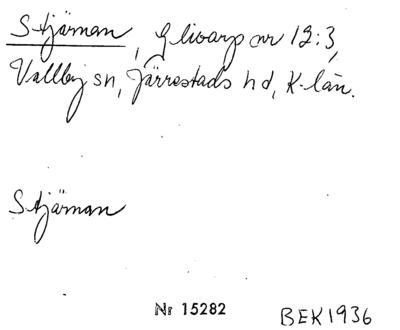 Stjärnan, Glivarp nr 12:3,
Vallby sn, Järrestads hd, K-län.
Stjärnan
Nr 15282 BEK1936